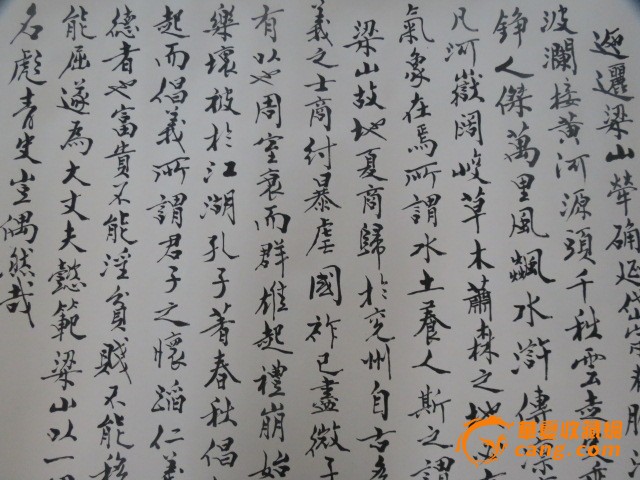 迤邐梁山犖确近岱宗
波瀾接黄河源頭千秋雲
錚人傑萬里風飈水滸傳
凡河嶽闊峻草木蕭森之地
氣象在焉所謂水土養人斯之謂
梁山故地夏商歸於兗州自古
義之士商付暴虐國祚已盡微子
有以也周室衰而群雄起禮崩始
樂壞被於江湖孔子著春秋倡
起而倡義所謂君子之懷蹈仁義
德者也富貴不能淫貧賤不能移
能屈遂為大丈夫懿範梁山以一
名彪青史豈偶然哉
華豐收藏網
cang.com